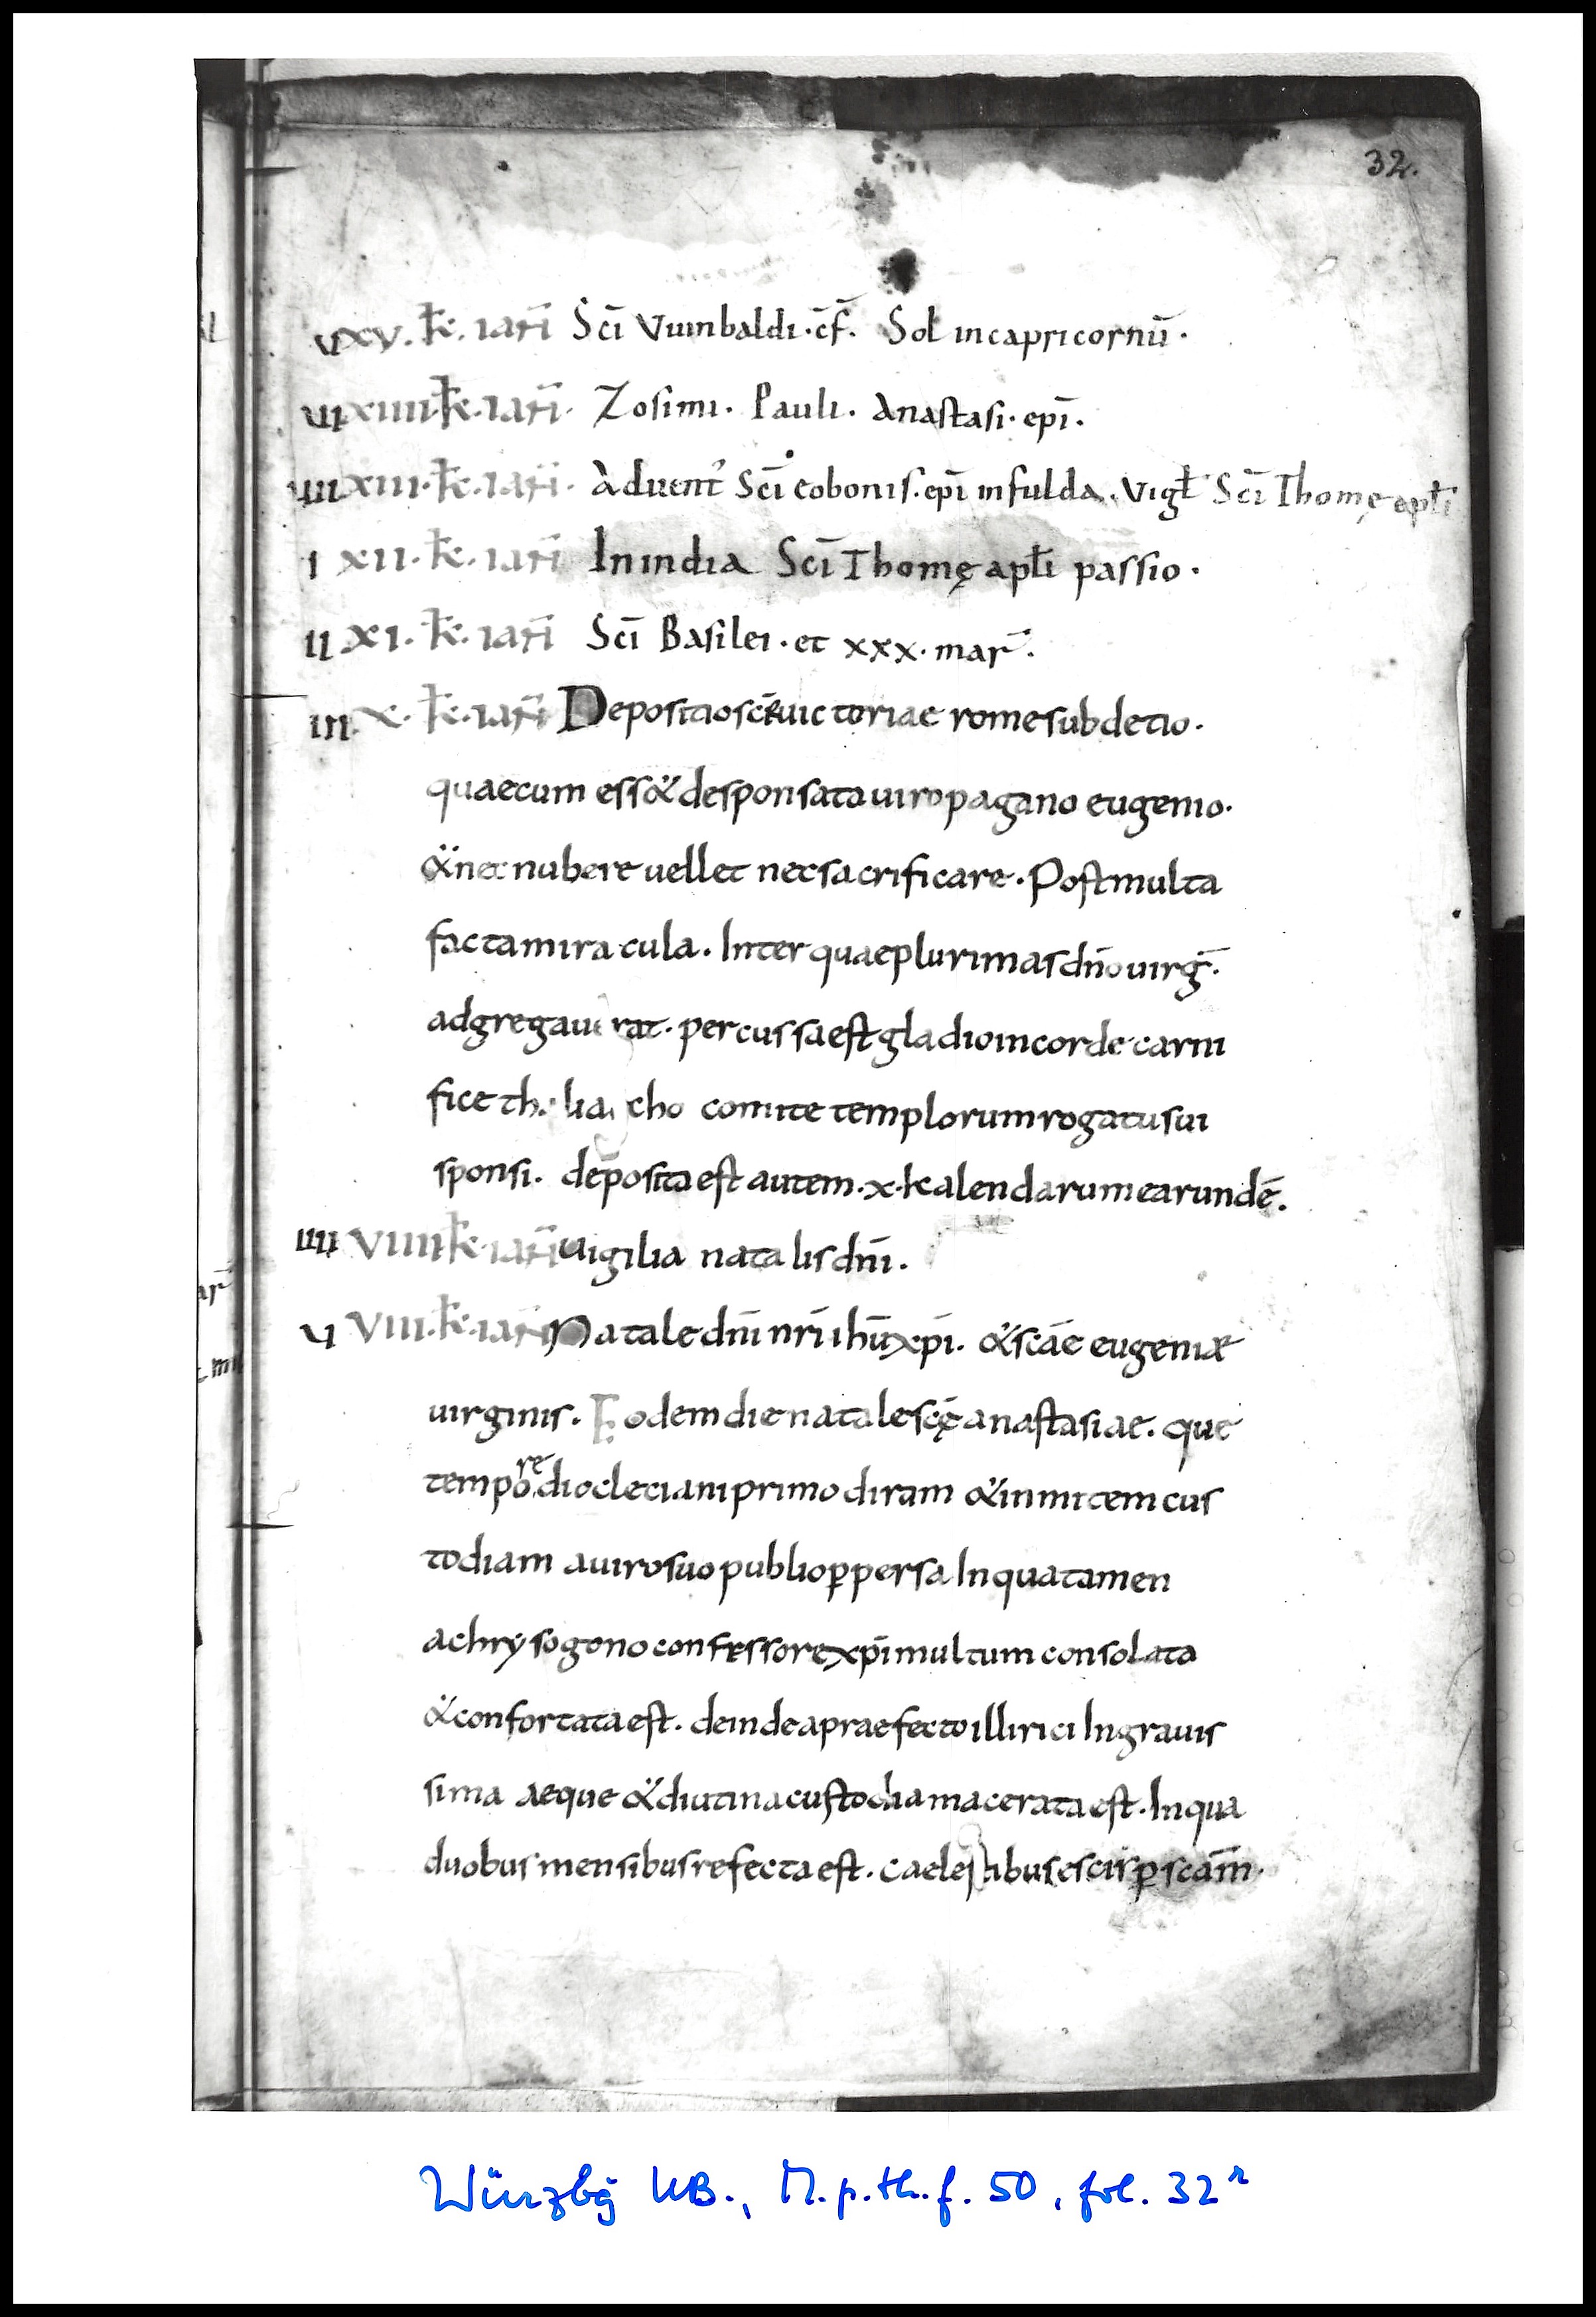 32.
v xv. kł. ian̄ Sc̄i Vuinbaldi. c̄f. Sol in capricornū.
vi xiiii. kł. ian̄. Zosimi. Pauli. Anastasi. ep̄i.
vii xiii. kł. ian̄. Aduent̄ Sc̄i eobonis. ep̄i in fulda. Vigł Sc̄i Thomę apłi
i xii. kł. ian̄ In india Sc̄i Thomę apłi passio.
ii xi. kł. ian̄ Sc̄i Basilei. et xxx. mar̄.
iii x. kł. ian̄ Depositio sc̄ę uictoriae rome sub detio.
quae cum esset desponsata uiro pagano eugenio.
et nec nubere uellet nec sacrificare. Post multa
facta miracula. Inter quae plurimas dn̄o uirḡ.
adgregauerat. percussa est gladio in corde carni
fice comite templorum rogatu sui
sponsi. deposita est autem. x. kalendarum earundē.
iiii viiii kł. ian̄ uigilia natalis dn̄i.
v viii. kł. ian̄ Natale dn̄i nr̄i ihū xp̄i. et sc̄ae eugeniae
uirginis. Eodem die natale sc̄ę anastasiae. que
tempore diocletiani primo diram et inmitem cus
todiam a uiro suo publio ꝑpersa In qua tamen
a chrysogono confessore xp̄i multum consolata
et confortata est. deinde a praefecto illirici In grauis
sima aeque et diutina custodia macerata est. In qua
duobus mensibus refecta est. caelestibus escis ꝑ sc̄am.
Würzbg UB., M.p.th.f. 50, fol. 32r